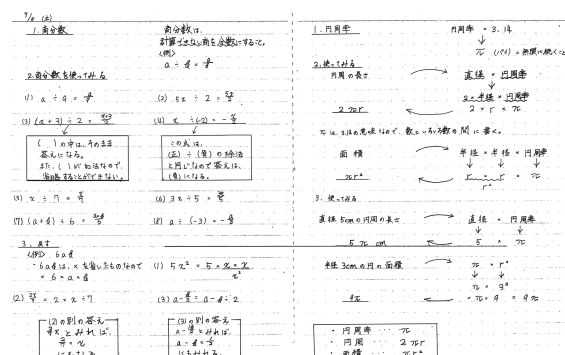 9/6 (土)
1. 商分数
商分数は、
計算できない商を分数にすること。
〈例〉
2. 商分数を使ってみる
(1) a ÷ 9 =
(2) 5x ÷ 2 = 5x/2
(3) (x + 3) ÷ 2 = x+3/2
(4) x ÷ (-2) = - x/2
( ) の中は、そのまま
答えになる。
また、( ) が加法なので、
省略することができない。
この式は、
(正) ÷ (負) の除法
と同じなので答えは、
(負) になる。
(5) x ÷ 7 = x/7
(6) 3x ÷ 5 = 3x/5
(7) ÷ 6 =
(8) a ÷ (-3) = - a/3
3. 戻す
〈例〉
は、× を省いたものなので
(1) 5x² = 5 × x × x
x²
(2) 2x/7 = 2 × x ÷ 7
(3)
(2) の別の答え
とみれば、
(3) の別の答え
とみれば、
にもみれる。
1. 円周率
円周率 = 3.14
π (パイ) = 無限に続く
2. 使ってみる
円周の長さ
直径 × 円周率
2 × 半径 × 円周率
2πr
2 × r × π
π は 3.14 の意味なので、数といろいろ数の間に書く。
面積
半径 × 半径 × 円周率
πr²
r × r × π
r²
3. 使ってみる
直径 5cm の円周の長さ
直径 × 円周率
5π cm
5 × π
半径 3cm の円の面積
π × r²
π × 3²
9π
= π × 9 = 9π
・円周率 ‥‥ π
・円周 ‥‥ 2πr
・面積 ‥‥ πr²